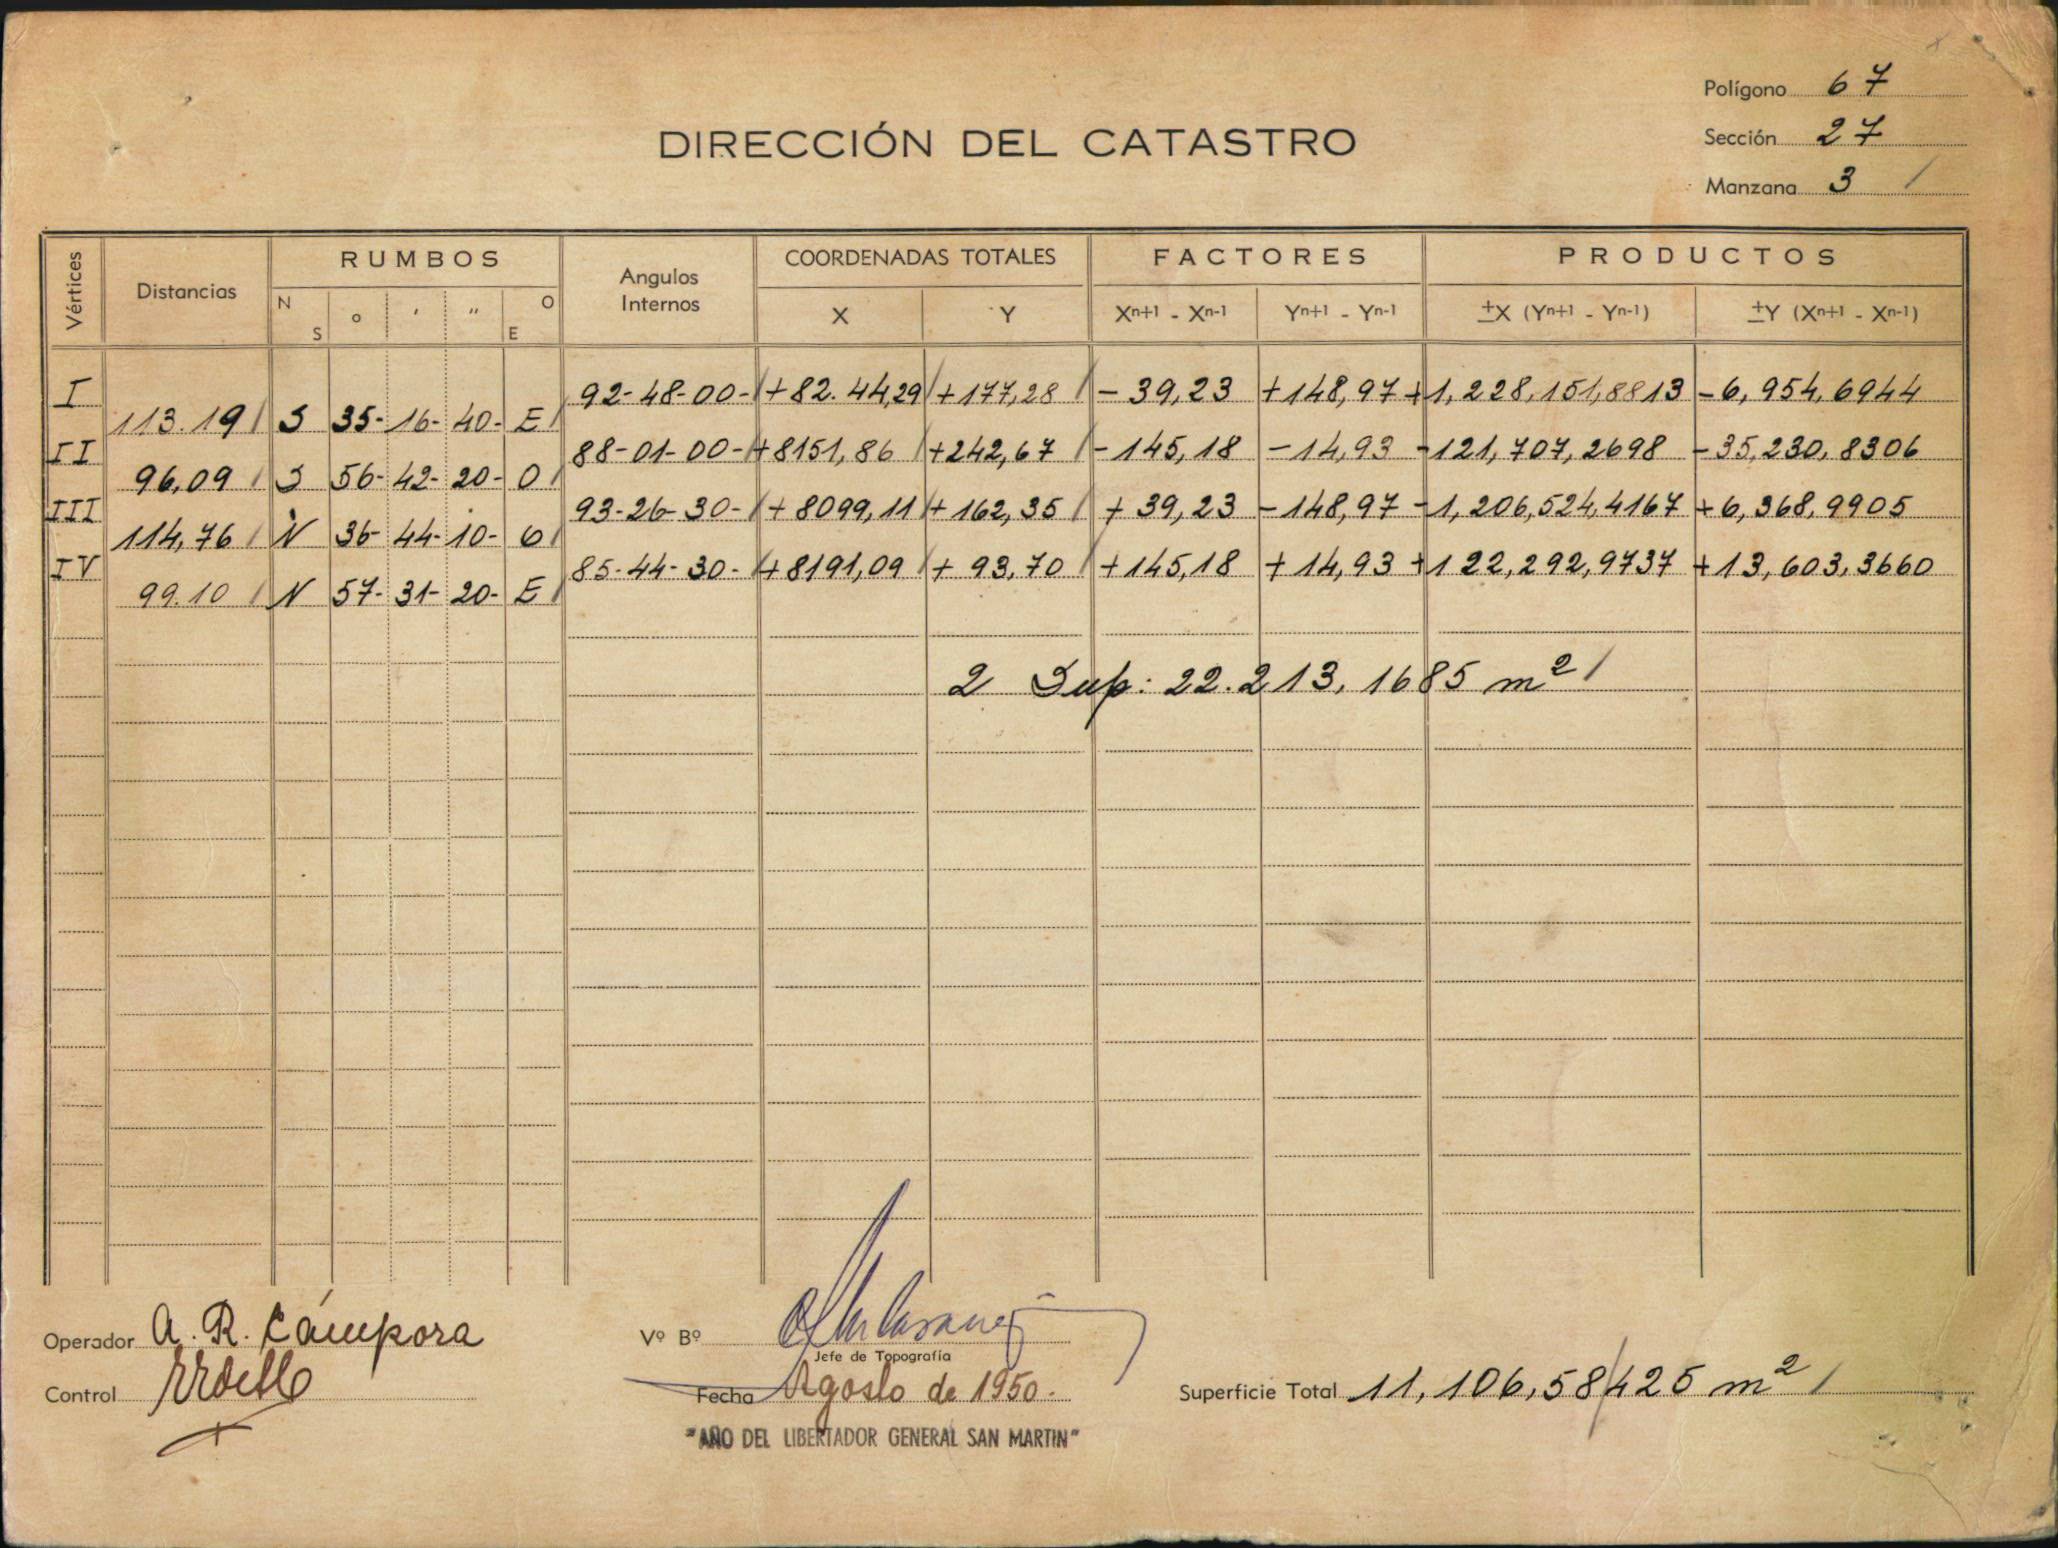 Polígono 67
DIRECCIÓN DEL CATASTRO
Sección 27
Manzana 3 /
Vértices Distancias RUMBOS Angulos Internos COORDENADAS TOTALES FACTORES PRODUCTOS
N S o ' " O E X Y Xn+1 - Xn-1 Yn+1 - Yn-1 ±X (Yn+1 - Yn-1) ±Y (Xn+1 - Xn-1)
I 92-48-00- / +82.44,29 / +177,28 / -39,23 +148,97 +1,228,151,8813 -6,954,6944
113.19 / S 35- 16- 40- E /
II 88-01-00- / +8151,86 / +242,67 / -145,18 -14,93 -121,707,2698 -35,230,8306
96,09 / S 56- 42- 20- O /
III 93-26-30- / +8099,11 / +162,35 / +39,23 -148,97 -1,206,524,4167 +6,368,9905
114,76 / N 36- 44- 10- O /
IV 85-44-30- / +8191,09 / +93,70 / +145,18 +14,93 +122,292,9737 +13,603,3660
99.10 / N 57- 31- 20- E /
2 Sup: 22.213,1685 m² /
Operador A. R. Cámpora
Vº Bº
Jefe de Topografía
Control
Fecha Agosto de 1950.
Superficie Total 11,106,58/425 m² /
"AÑO DEL LIBERTADOR GENERAL SAN MARTIN"